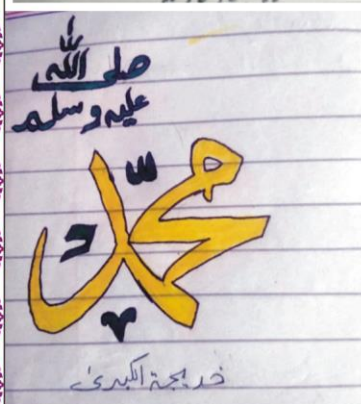 صلى الله
عليه وسلم
محمد
خديجة الكبرىٰ